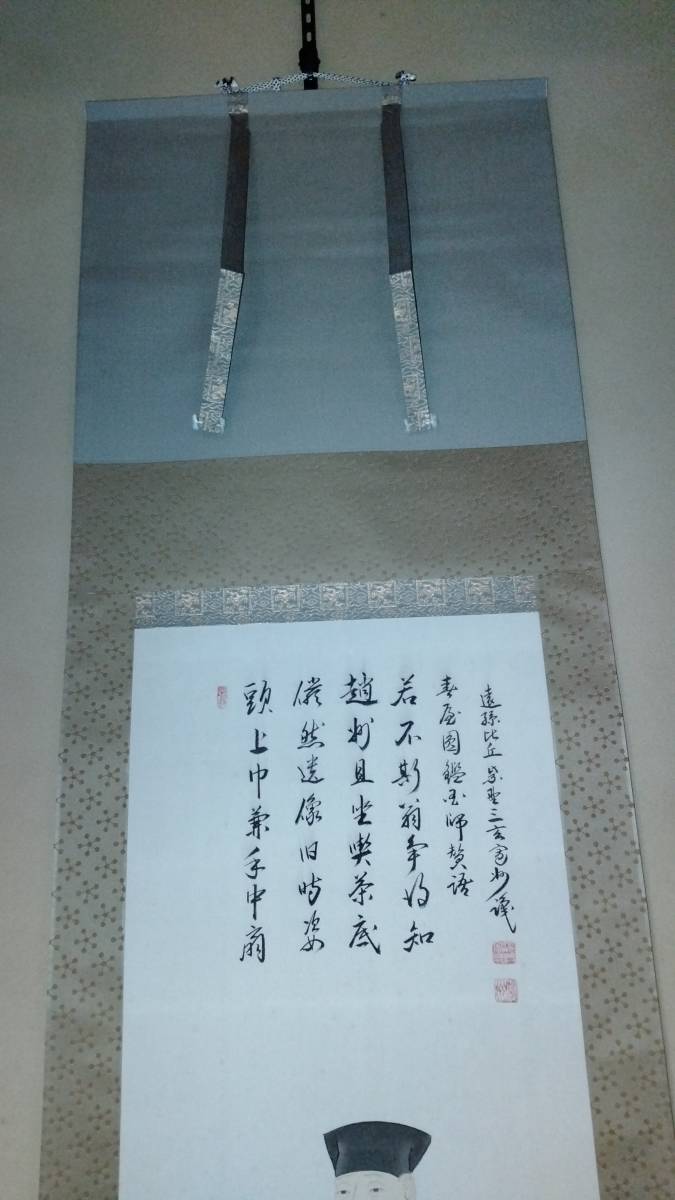 頭上巾兼手中扇
儼然遺像旧時姿
趙州且坐喫茶底
若不斯翁争得知
春屋圓鑑国師賛語
遠孫比丘紫野三玄寛州識